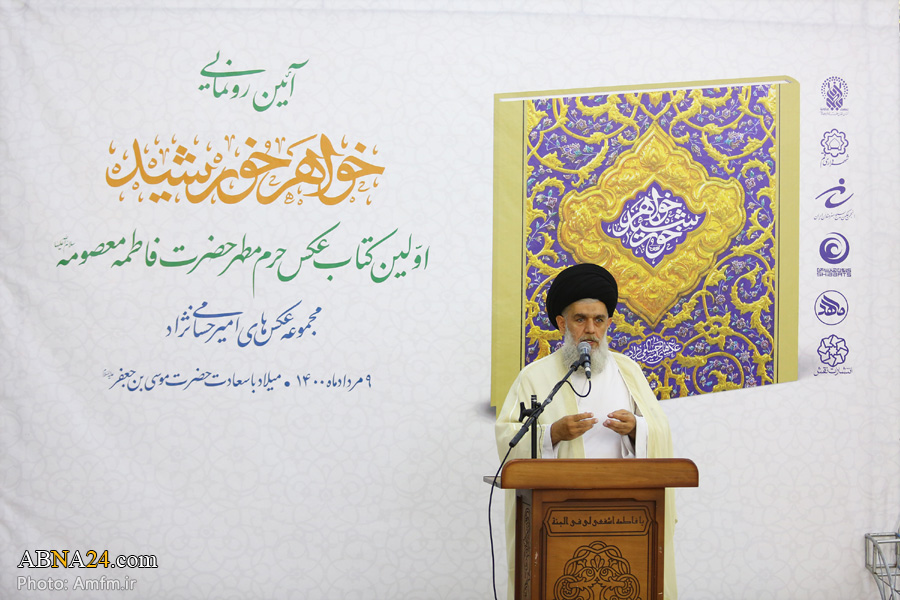 آئین رونمایی
خواهر خورشید
اوّلین کتاب عکس حرم مطهر حضرت فاطمه معصومه سلام الله علیها
مجموعه عکس‌های امیرحسامی‌نژاد
۹ مرداد ماه ۱۴۰۰ • میلاد با سعادت حضرت موسی بن جعفر
خواهر خورشید
یا فاطمة اشفعی لی فی الجنة
انتشارات نقش
ABNA24.com
Photo: Amfm.ir